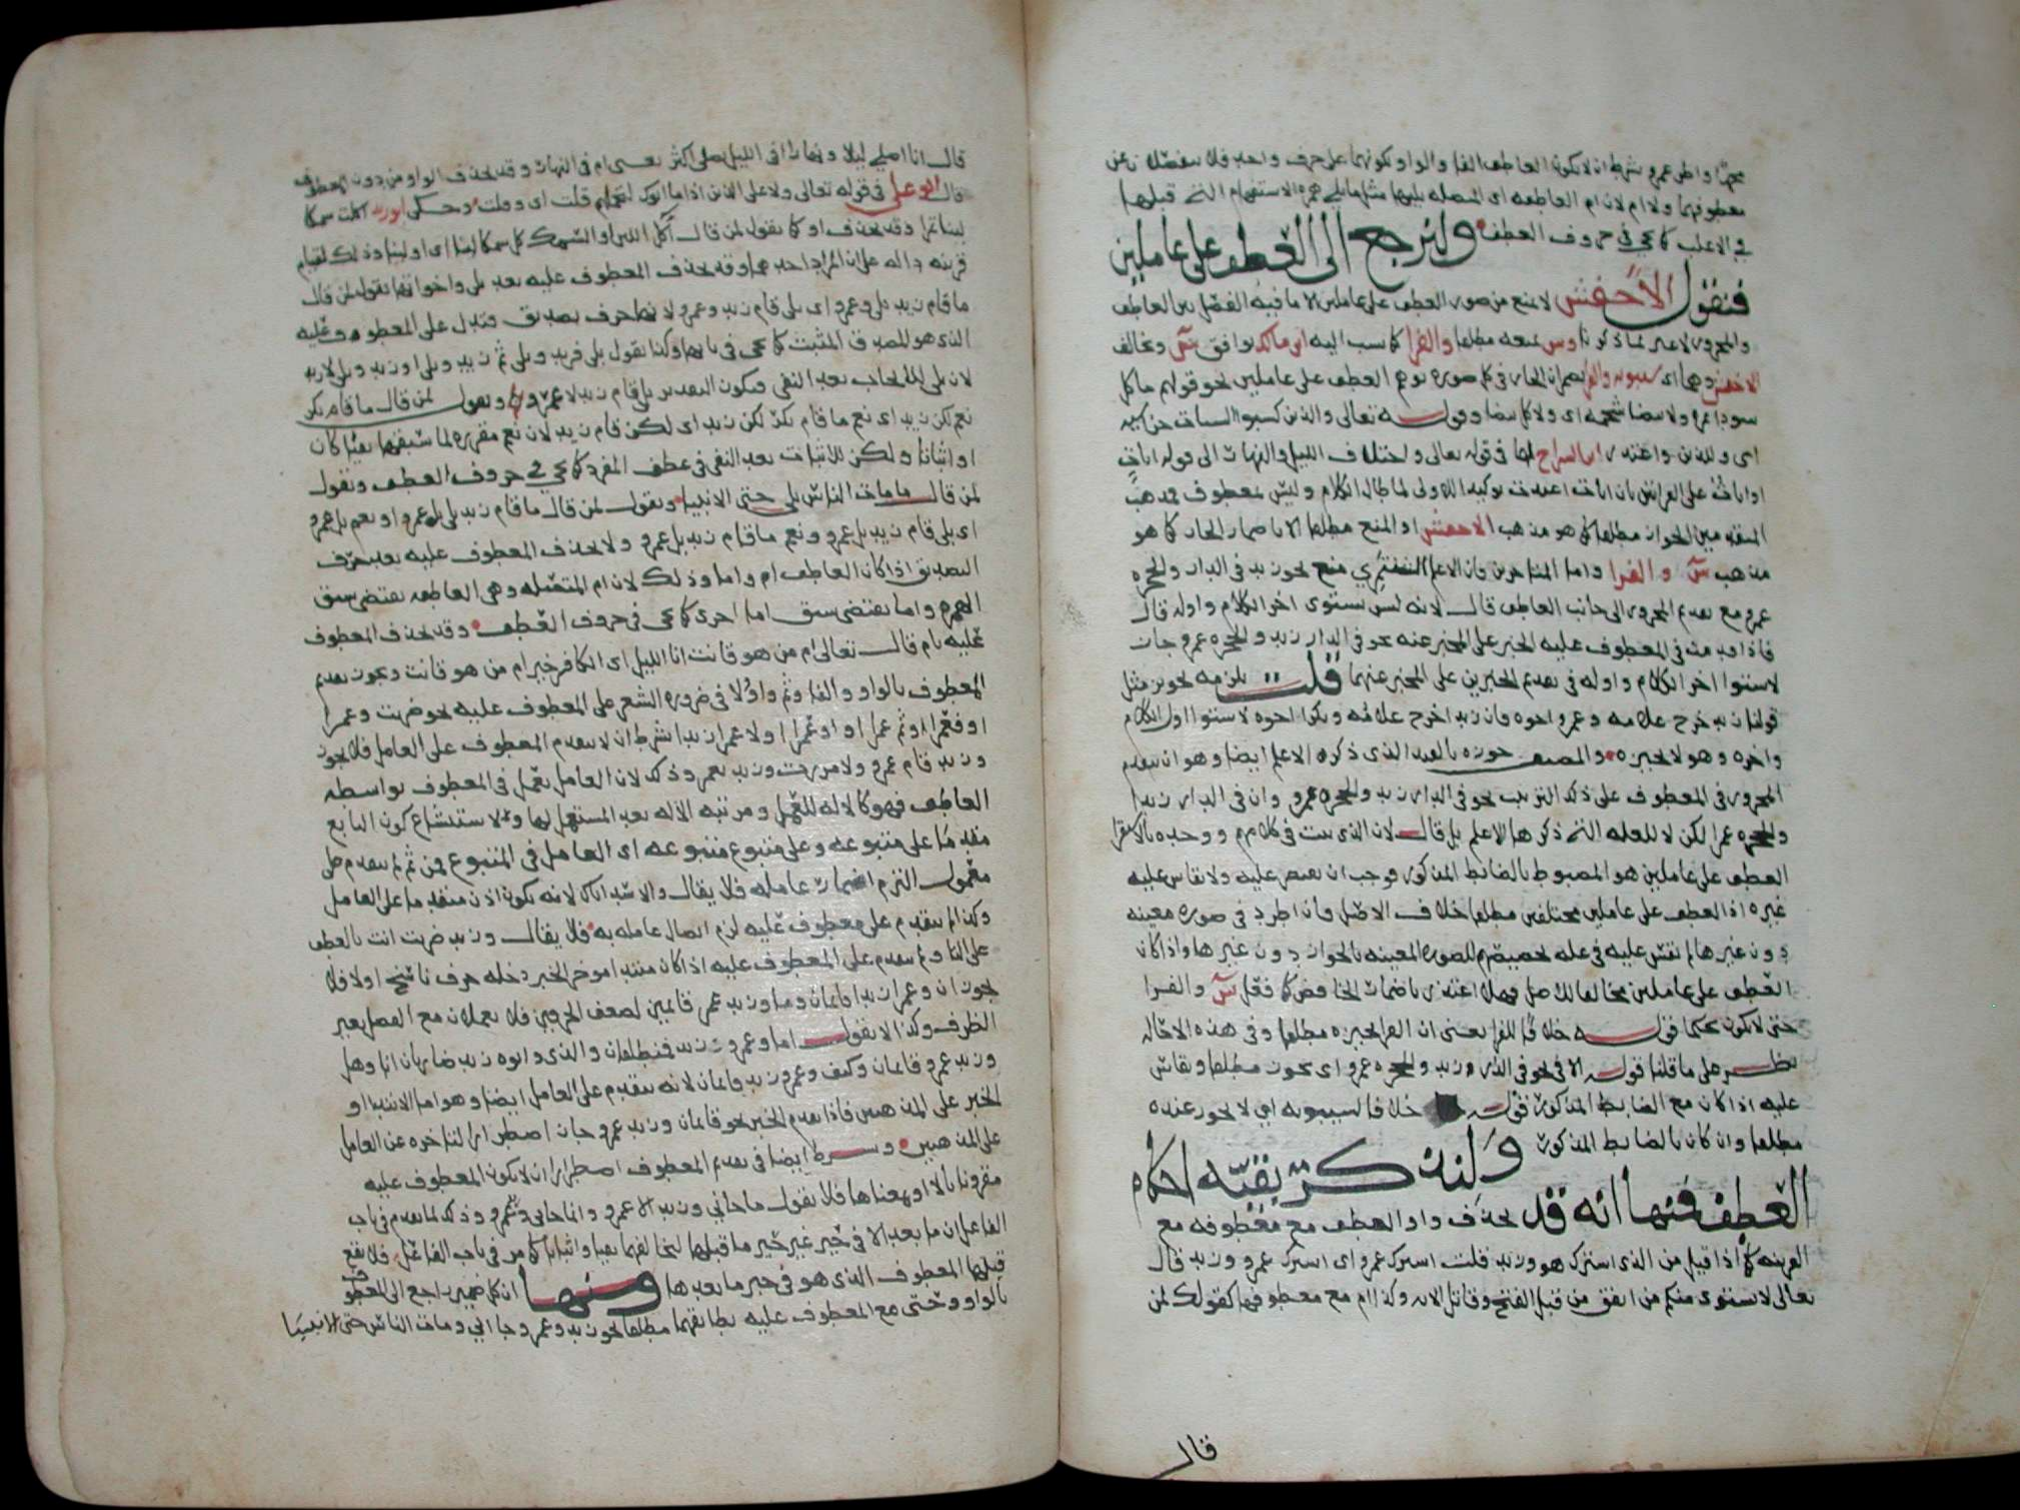 معطوفيها ولا ام لان ام العاطفة اى المتصلة يليها مثل ما يلى همزة الاستفهام التى قبلها
فى الاغلب كما يجى فى حروف العطف ولنرجع الى العطف على عاملين
فنقول الاخفش لا يمنع من صور العطف على عاملين الا ما فيه الفصل بين العاطف
والمجرور لا غير لما ذكرنا وس يمنعه مطلقا والفرا كما نسب اليه ابن مالك يوافق س ويخالف
الاخفش وهما اى سيبويه والفرا يضمران الجار فى كل صورة توهم العطف على عاملين نحو قولهم ما كل
سودا تمرة ولا بيضا شحمة اى ولا كل بيضا وقوله تعالى والذين كسبوا السيات جزا سيئة
اى وللذين واعتذر ابن السراج لهما فى قوله تعالى واختلاف الليل والنهار الى قوله ايات
او ايات على القراتين بان ايات اعيدت توكيدا للاولى لما طال الكلام وليس بمعطوف فمذهب
المتقدمين الجواز مطلقا كما هو مذهب الاخفش او المنع مطلقا الا باضمار الجار كما هو
مذهب س والفرا واما المتاخرون فان الاعلم الشنتمرى منع نحو زيد فى الدار والحجرة
عمرو مع تقديم المجرور الى جانب العاطف قال لانه ليس يستوى اخر الكلام واوله قال
فاذا قدمت فى المعطوف عليه الخبر على المخبر عنه نحو فى الدار زيد والحجرة عمرو جاز
لاستوا اخر الكلام واوله فى تقديم الخبرين على المخبر عنهما قلت يلزمه تجويز مثل
قولنا زيد خرج غلامه وعمرو اخوه وان زيدا خرج غلامه وبكرا اخوه لاستوا اول الكلام
واخره وهو لا يجيزه والمصنف جوزه بالقيد الذى ذكره الاعلم ايضا وهو ان يتقدم
المجرور فى المعطوف على ذلك الترتيب نحو فى الدار زيد والحجرة عمرو وان فى الدار زيدا
والحجرة عمرا لكن لا للعلة التى ذكرها الاعلم بل قال لان الذى ثبت فى كلامهم ووجد بالاستقرا
العطف على عاملين هو المضبوط بالضابط المذكور فوجب ان يقتصر عليه ولا يقاس عليه
غيره اذ العطف على عاملين مختلفين مطلقا خلاف الاصل فان اطرد فى صورة معينة
دون غيرها لم نقس عليه فى علة تخصيصهم للصورة المعينة بالجواز دون غيرها واذا كان
العطف على عاملين مخالفا للاصل فهلا اعتذر باضمار الخافض كما فعل س والفرا
حتى لا يكون تحكما قوله خلافا للفرا يعنى ان الفرا يجيزه مطلقا وفى هذه الاحالة
نظر على ما قلنا قوله الا فى نحو فى الدار زيد والحجرة عمرو اى يجوز مطلقا ويقاس
عليه اذا كان مع الضابط المذكور قوله خلافا لسيبويه اى لا يجوز عنده
مطلقا وان كان بالضابط المذكور ولنذكر بقية احكام
العطف فمنها انه قد تحذف واو العطف مع معطوفه مع
القرينة كما اذا قيل من الذى اشترك هو وزيد قلت اشترك عمرو اى اشترك عمرو وزيد قال
تعالى لا يستوى منكم من انفق من قبل الفتح وقاتل الاية وكذا ام مع معطوفها كقولك لمن
قال
قال انا اصلى ليلا ونهارا افى الليل تصلى اكثر يعنى ام فى النهار وقد تحذف الواو من دون المعطوف
قال ابو على فى قوله تعالى ولا على الذين اذا ما اتوك لتحملهم قلت اى وقلت وحكى ابو زيد اكلت سمكا
لبنا تمرا وقد تحذف او كما تقول لمن قال اكل اللبن او السمك كل سمكا لبنا اى او لبنا وذلك لقيام
قرينة دالة على ان المراد احدهما وقد تحذف المعطوف عليه بعد بلى واخواتها تقول لمن قال
ما قام زيد بلى وعمرو اى بلى قام زيد وعمرو
الذى هو للصدق المثبت كما يجى فى بابها وكذا تقول بلى فزيد وبلى ثم زيد وبلى او زيد وبلى لا زيد
نعم لكن زيد اى نعم ما قام بكر لكن زيد اى لكن قام زيد لان نعم مقررة لما سبقها نفيا كان
او اثباتا ولكن للاثبات بعد النفى فى عطف المفرد كما يجى فى حروف العطف وتقول
لمن قال ما مات الناس بلى حتى الانبيا وتقول لمن قال ما قام زيد بلى بل عمرو او نعم بل عمرو
اى بلى قام زيد بل عمرو ونعم ما قام زيد بل عمرو ولا تحذف المعطوف عليه بعد حرف
التصديق اذا كان العاطف ام واما وذلك لان ام المتصلة وهى العاطفة تقتضى سبق
الهمزة واما تقتضى سبق اما اخرى كما يجى فى حروف العطف وقد تحذف المعطوف
عليه بام قال تعالى ام من هو قانت انا الليل اى الكافر خير ام من هو قانت ويجوز تقديم
المعطوف بالواو والفا وثم واو ولا فى ضرورة الشعر على المعطوف عليه نحو ضربت وعمرا
او فعمرا او ثم عمرا او او عمرا او لا عمرا زيدا بشرط ان لا يتقدم المعطوف على العامل فلا يجوز
وزيد قام عمرو ولا مررت وزيد بعمرو وذلك لان العامل يعمل فى المعطوف بواسطة
العاطف فهو كالالة للعمل ومرتبة الالة بعد المستعمل لها ولاستبشاع كون التابع
مقدما على متبوعه وعلى متبوع متبوعه اى العامل فى المتبوع فمن ثم لم يتقدم على
معمول التزم اضمار عامله فلا يقال والاسد اياك لانه يكون اذن متقدما على العامل
وكذا لم يتقدم على معطوف عليه لزم اتصال عامله به فلا يقال وزيد ضربت انت بالعطف
على التا ولم يتقدم على المعطوف عليه اذا كان مبتدا موخر الخبر دخله حرف ناسخ اولا فلا
يجوز ان وعمرا زيدا قايمان وما وزيد عمرو قايمين لضعف الحرفين فلا يعملان مع الفصل بغير
الظرف وكذا لا تقول اما وعمرو زيد فمنطلقان والذى وابوه زيد ضاربان انا وهل
وزيد عمرو قايمان وكيف وعمرو زيد قايمان لانه يتقدم على العامل ايضا وهو اما الابتدا او
الخبر على المذهبين فاذا تقدم الخبر نحو قايمان وزيد عمرو جاز اضطرارا لتاخره عن العامل
على المذهبين وشرط ايضا فى تقديم المعطوف اضطرارا ان لا يكون المعطوف عليه
مقرونا بالا او بمعناها فلا تقول ما جانى وزيد الا عمرو وانما جانى وزيد عمرو وذلك لما تقدم فى باب
الفاعل ان ما بعد الا فى حيز غير حيز ما قبلها لتخالفهما نفيا واثباتا كما مر فى باب الفاعل فلا يقع
قبلها المعطوف الذى هو فى حيز ما بعدها ومنها ان كل ضمير راجع الى المعطوف
بالواو وحتى مع المعطوف عليه يطابقهما مطلقا نحو زيد وعمرو جا انى ومات الناس حتى الانبيا